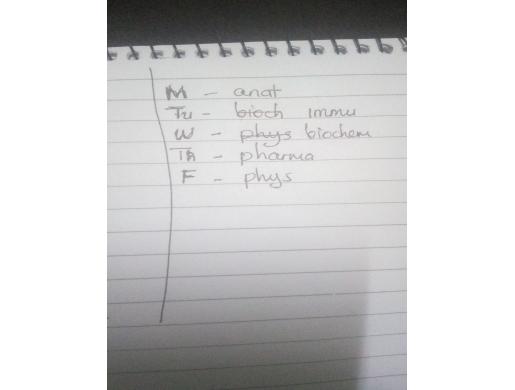 M - anat
Tu - bioch immu
W - phys biochem
Th - pharma
F - phys